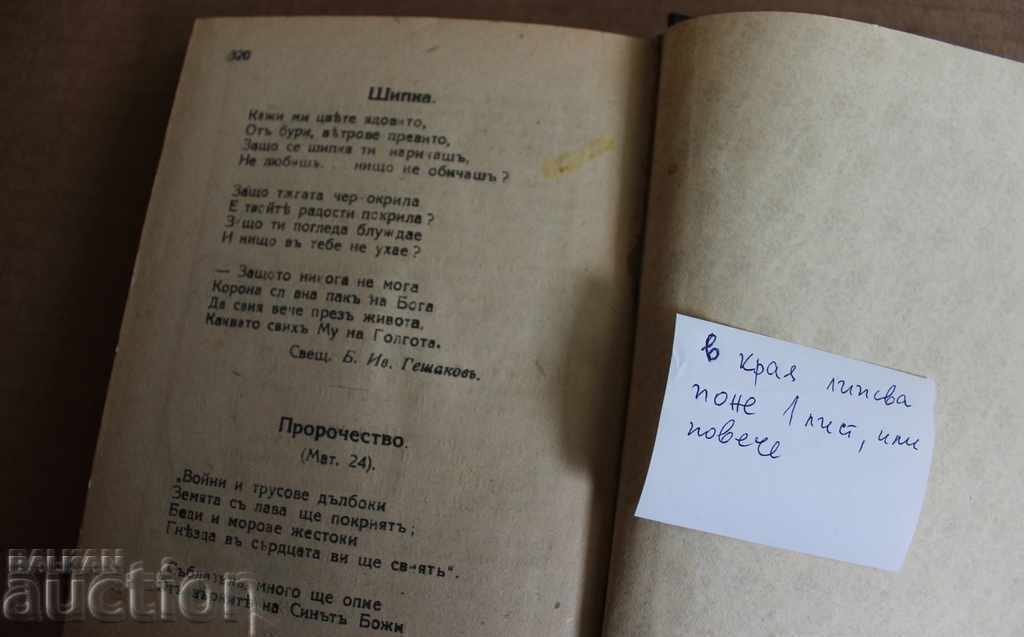 320
Шипка.
Кажи ми цвѣте ядовито,
Отъ бури, вѣтрове превито,
Защо се шипка ти наричашъ,
Не любишъ... нищо не обичашъ?
Защо тѫгата чер окрила
Е твойтѣ радости покрила?
Защо ти погледа блуждае
И нищо въ тебе не ухае?
— Защото никога не мога
Корона сл вна пакъ на Бога
Да свия вече презъ живота,
Каквато свихъ Му на Голгота.
Свещ. Б. Ив. Гешаковъ.
Пророчество.
(Мат. 24).
„Войни и трусове дълбоки
Земята съ лава ще покриятъ;
Беди и морове жестоки
Гнѣзда въ сърдцата ви ще свиятъ“.
много ще опие
на Синътъ Божи
в края липсва
поне 1 лист, или
повече
БАЛКАН
auction